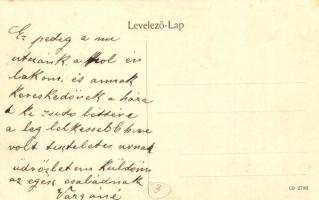 Levelező-Lap
Ez pedig a mi
utcánk a hol én
lakom, és annak
kereskedőnek a háza
ki zsidó létére
a leg lelkesebb
volt tiszteletes urnak
üdvözletem küldöm
az egész családnak
Vargáné
3
CD 2793